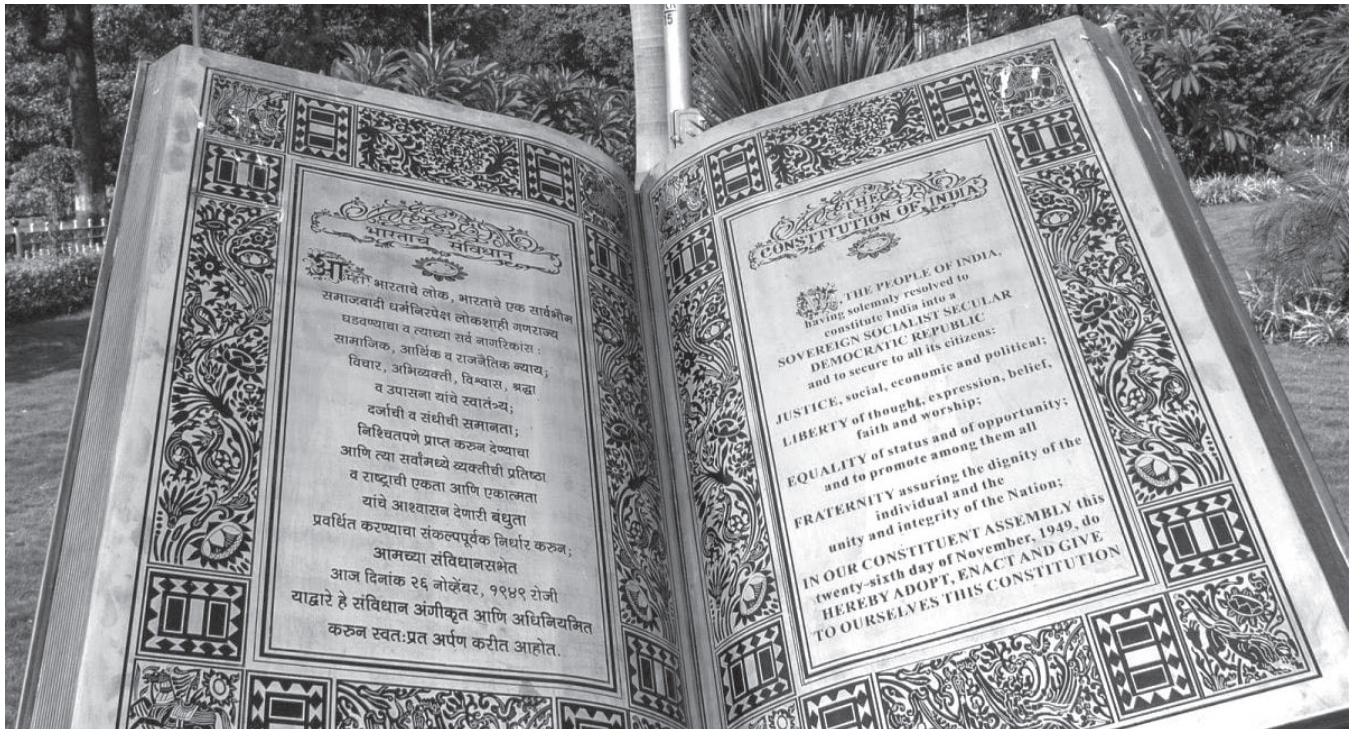 भारताचे संविधान
आम्ही भारताचे लोक, भारताचे एक सार्वभौम
समाजवादी धर्मनिरपेक्ष लोकशाही गणराज्य
घडवण्याचा व त्याच्या सर्व नागरिकांस :
सामाजिक, आर्थिक व राजनैतिक न्याय;
विचार, अभिव्यक्ती, विश्वास, श्रद्धा
व उपासना यांचे स्वातंत्र्य;
दर्जाची व संधीची समानता;
निश्चितपणे प्राप्त करुन देण्याचा
आणि त्या सर्वांमध्ये व्यक्तीची प्रतिष्ठा
व राष्ट्राची एकता आणि एकात्मता
यांचे आश्वासन देणारी बंधुता
प्रवर्धित करण्याचा संकल्पपूर्वक निर्धार करुन;
आमच्या संविधानसभेत
आज दिनांक २६ नोव्हेंबर, १९४९ रोजी
याद्वारे हे संविधान अंगीकृत आणि अधिनियमित
करुन स्वत:प्रत अर्पण करीत आहोत.
THE
CONSTITUTION OF INDIA
WE, THE PEOPLE OF INDIA,
having solemnly resolved to
constitute India into a
SOVEREIGN SOCIALIST SECULAR
DEMOCRATIC REPUBLIC
and to secure to all its citizens:
JUSTICE, social, economic and political;
LIBERTY of thought, expression, belief,
faith and worship;
EQUALITY of status and of opportunity;
and to promote among them all
FRATERNITY assuring the dignity of the
individual and the
unity and integrity of the Nation;
IN OUR CONSTITUENT ASSEMBLY this
twenty-sixth day of November, 1949, do
HEREBY ADOPT, ENACT AND GIVE
TO OURSELVES THIS CONSTITUTION